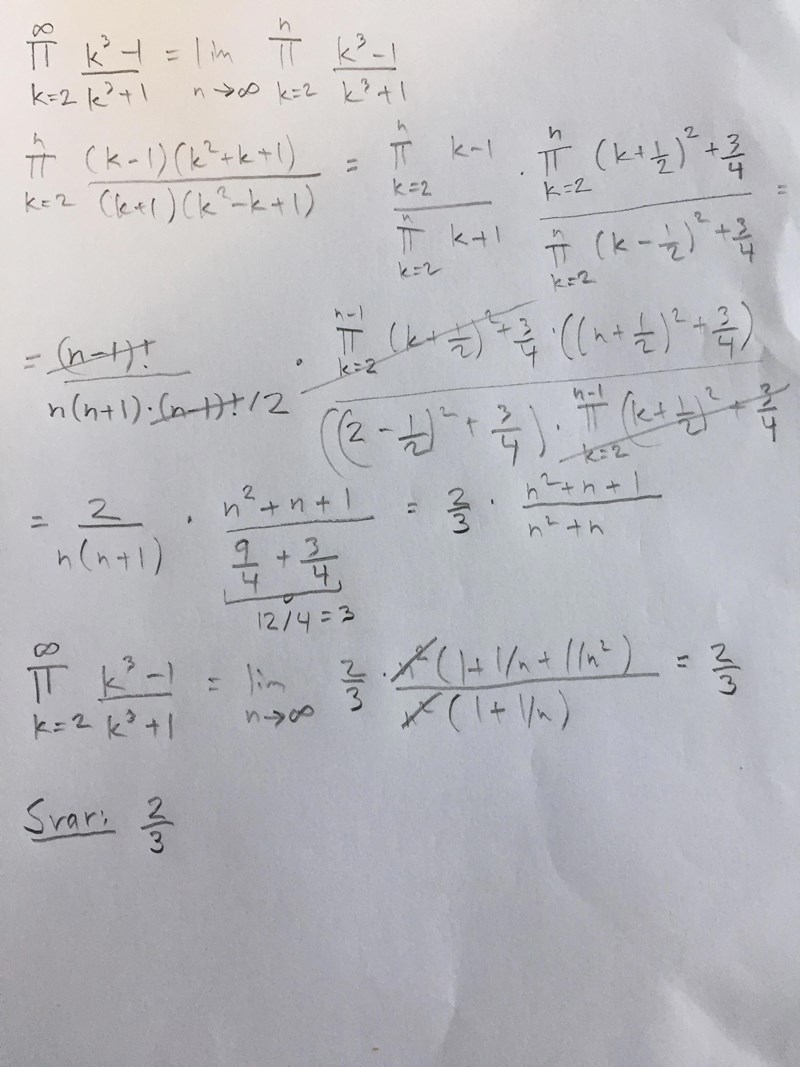 ∞∏k=2 (k³-1)/(k³+1) = lim n→∞ n∏k=2 (k³-1)/(k³+1)
n∏k=2 (k-1)(k²+k+1)/((k+1)(k²-k+1)) = (n∏k=2 k-1)/(n∏k=2 k+1) · (n∏k=2 (k+1/2)²+3/4)/(n∏k=2 (k-1/2)²+3/4) =
= (n-1)!/(n(n+1)·(n-1)!/2) · (n-1∏k=2 (k+1/2)²+3/4 · ((n+1/2)²+3/4))/(((2-1/2)²+3/4) · n-1∏k=2 (k+1/2)²+3/4)
= 2/(n(n+1)) · (n²+n+1)/(9/4+3/4) = 2/3 · (n²+n+1)/(n²+n)
12/4=3
∞∏k=2 (k³-1)/(k³+1) = lim n→∞ 2/3 · n²(1+1/n+1/n²)/(n²(1+1/n)) = 2/3
Svar: 2/3